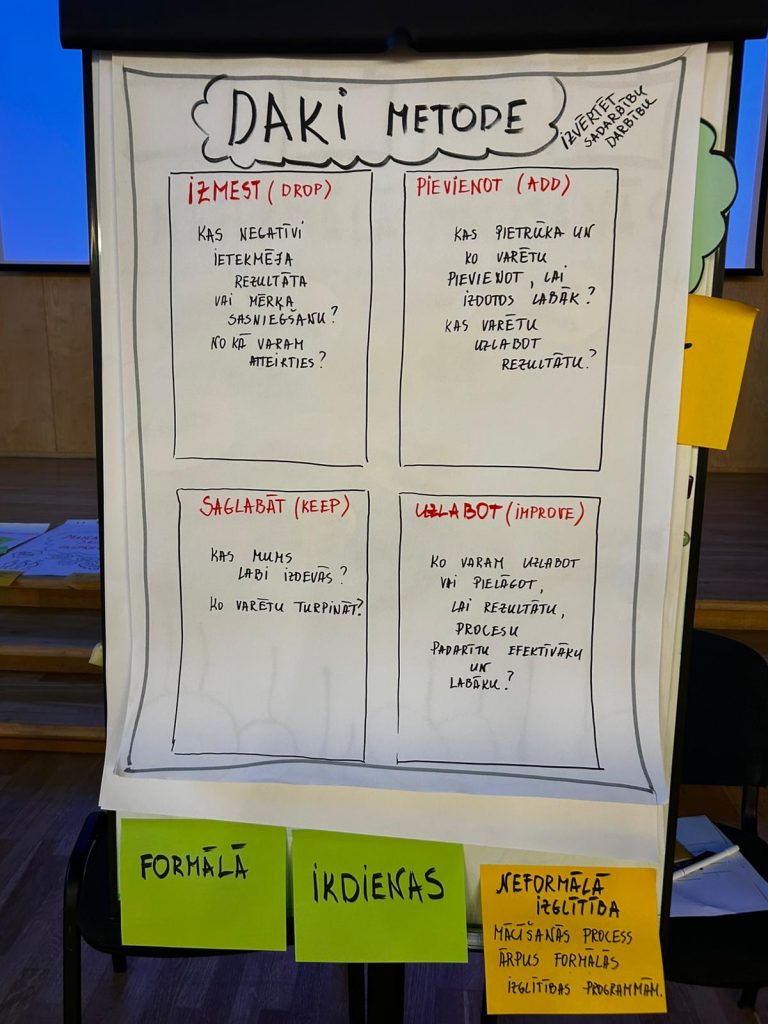 DAKI METODE
IZVĒRTĒT
SADARBĪBU
DARBĪBU
IZMEST (DROP)
KAS NEGATĪVI
IETEKMĒJA
REZULTĀTA
VAI MĒRĶA
SASNIEGŠANU?
NO KĀ VARAM
ATTEIKTIES?
PIEVIENOT (ADD)
KAS PIETRŪKA UN
KO VARĒTU
PIEVIENOT, LAI
IZDOTOS LABĀK?
KAS VARĒTU
UZLABOT
REZULTĀTU?
SAGLABĀT (KEEP)
KAS MUMS
LABI IZDEVĀS?
KO VARĒTU TURPINĀT?
UZLABOT (IMPROVE)
KO VARAM UZLABOT
VAI PIELĀGOT,
LAI REZULTĀTU,
PROCESU
PADARĪTU EFEKTĪVĀKU
UN
LABĀKU?
FORMĀLĀ
IKDIENAS
NEFORMĀLĀ
IZGLĪTĪBA
MĀCĪŠANĀS PROCESS
ĀRPUS FORMĀLĀS
IZGLĪTĪBAS PROGRAMMĀM.